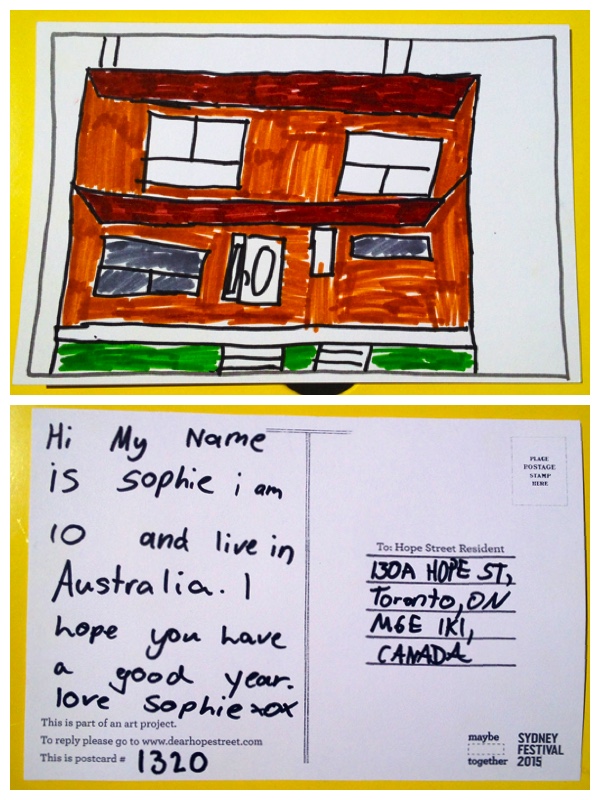 Hi My Name
is sophie i am
10 and live in
Australia. I
hope you have
a good year.
love Sophie xox
This is part of an art project.
To reply please go to www.dearhopestreet.com
This is postcard # 1320
PLACE
POSTAGE
STAMP
HERE
To: Hope Street Resident
130A HOPE ST,
Toronto, ON
M6E 1K1,
CANADA
maybe
together
SYDNEY
FESTIVAL
2015